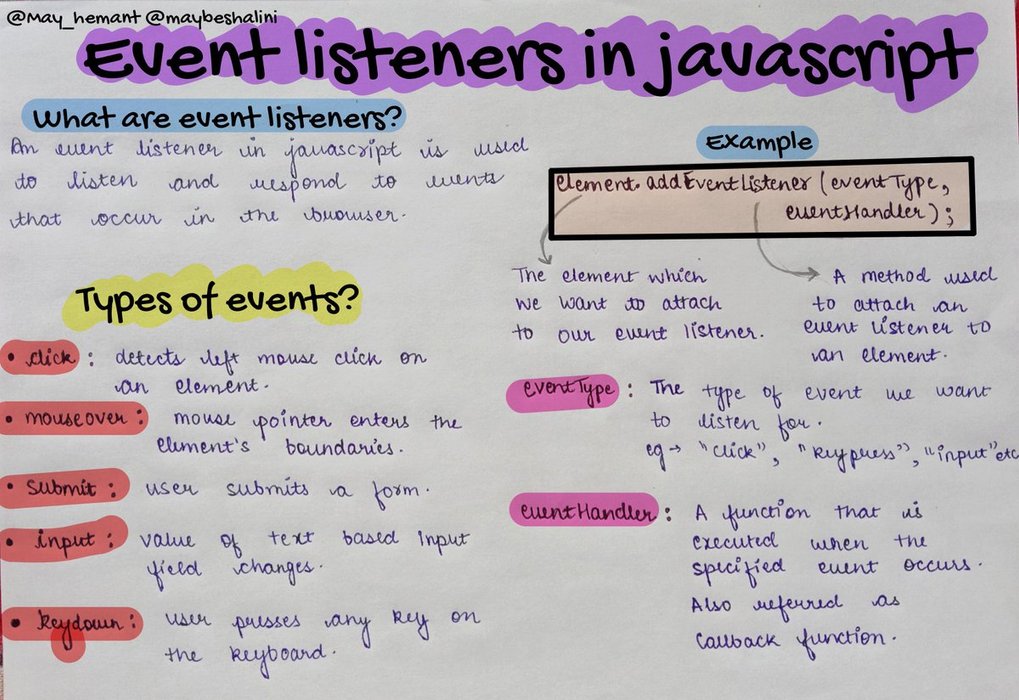 @May_hemant @maybeshalini
Event listeners in javascript
What are event listeners?
An event listener in javascript is used
to listen and respond to events
that occur in the browser.
Types of events?
• click : detects left mouse click on
an element.
• mouseover : mouse pointer enters the
element's boundaries.
• submit : user submits a form.
• input : value of text based input
field changes.
• keydown : user presses any key on
the keyboard.
Example
element.addEventListener (eventType,
eventHandler);
The element which
we want to attach
to our event listener.
A method used
to attach an
event listener to
an element.
eventType : The type of event we want
to listen for.
eg → "click", "keypress", "input" etc
eventHandler : A function that is
executed when the
specified event occurs.
Also referred as
callback function.